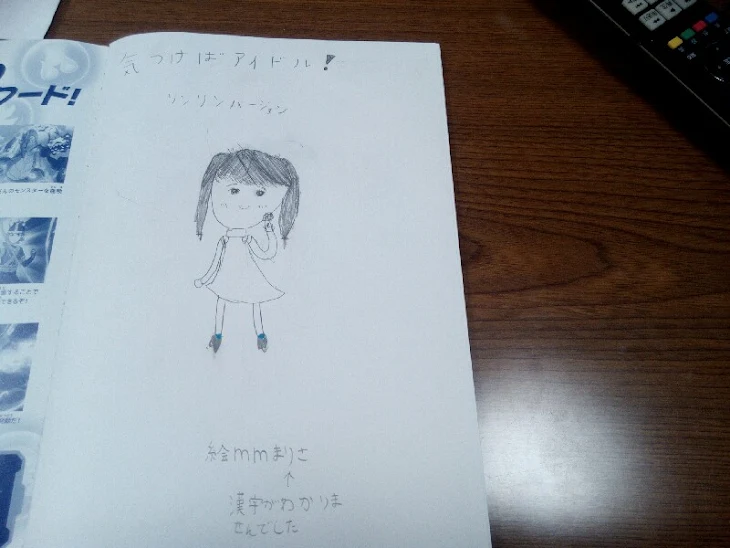 気つけばアイドル!
リンリンバージョン
フード!
絵mmまりさ
↑
漢字がわかりま
せんでした